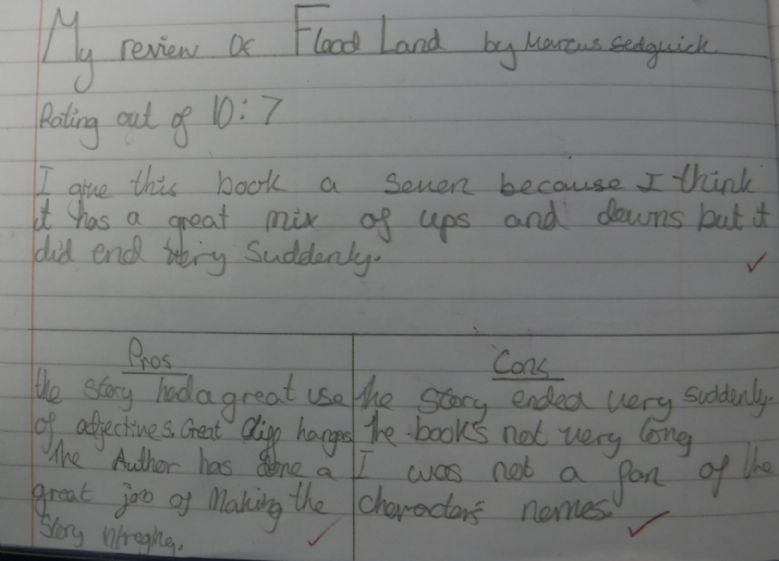 My review of Flood Land by Marcus Sedgwick
Rating out of 10: 7
I give this book a seven because I think
it has a great mix of ups and downs but it
did end very suddenly.
Pros
the story had a great use
of adjectives. Great cliff hanges
The Author has done a
great job of Making the
Story
Cons
the story ended very suddenly.
the book's not very long
I was not a fan of the
characters names.